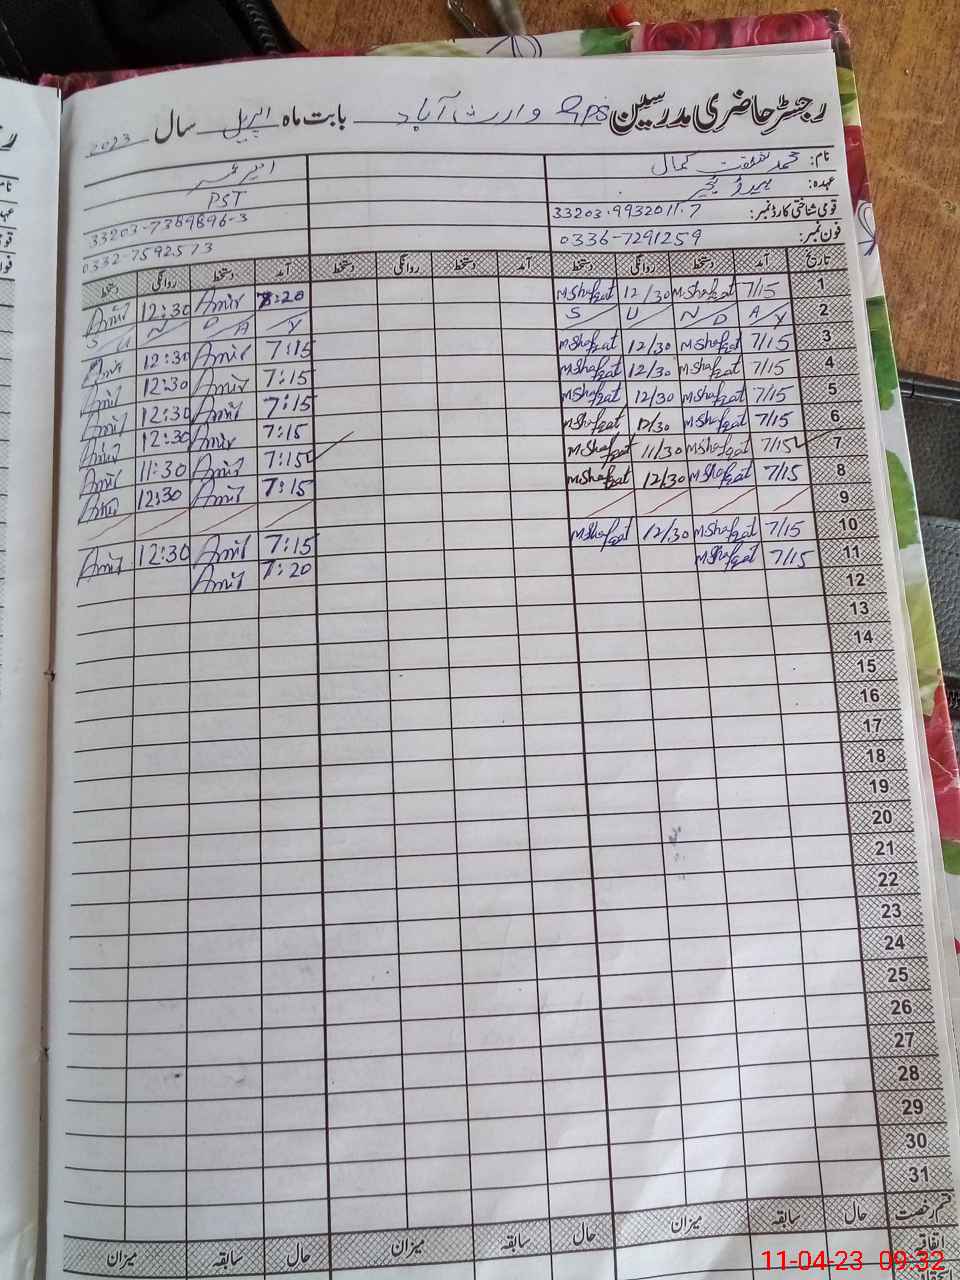 رجسٹر حاضری مدرسین GPS وارث آباد بابت ماہ اپریل سال 2023
نام: محمد شفقت کمال امیر عمر
عہدہ: ہیڈ ٹیچر PST
قومی شناختی کارڈ نمبر: 33203-9932011-7 33203-7389896-3
فون نمبر: 0336-7291259 0332-7592573
تاریخ آمد دستخط روانگی دستخط آمد دستخط روانگی دستخط آمد دستخط روانگی دستخط
1 7/15 M.Shafqat 12/30 M.Shafqat 7:20 Amir 12:30 Amir
2 S U N D A Y S U N D A Y
3 7/15 M.Shafqat 12/30 M.Shafqat 7:15 Amir 12:30 Amir
4 7/15 M.Shafqat 12/30 M.Shafqat 7:15 Amir 12:30 Amir
5 7/15 M.Shafqat 12/30 M.Shafqat 7:15 Amir 12:30 Amir
6 7/15 M.Shafqat 12/30 M.Shafqat 7:15 Amir 12:30 Amir
7 7/15 M.Shafqat 11/30 M.Shafqat 7:15 Amir 11:30 Amir
8 7/15 M.Shafqat 12/30 M.Shafqat 7:15 Amir 12:30 Amir
9
10 7/15 M.Shafqat 12/30 M.Shafqat 7:15 Amir 12:30 Amir
11 7/15 M.Shafqat 7:20 Amir
12
13
14
15
16
17
18
19
20
21
22
23
24
25
26
27
28
29
30
31
قسم رخصت حال سابقہ میزان حال سابقہ میزان حال سابقہ میزان
اتفاقیہ
11-04-23 09:32